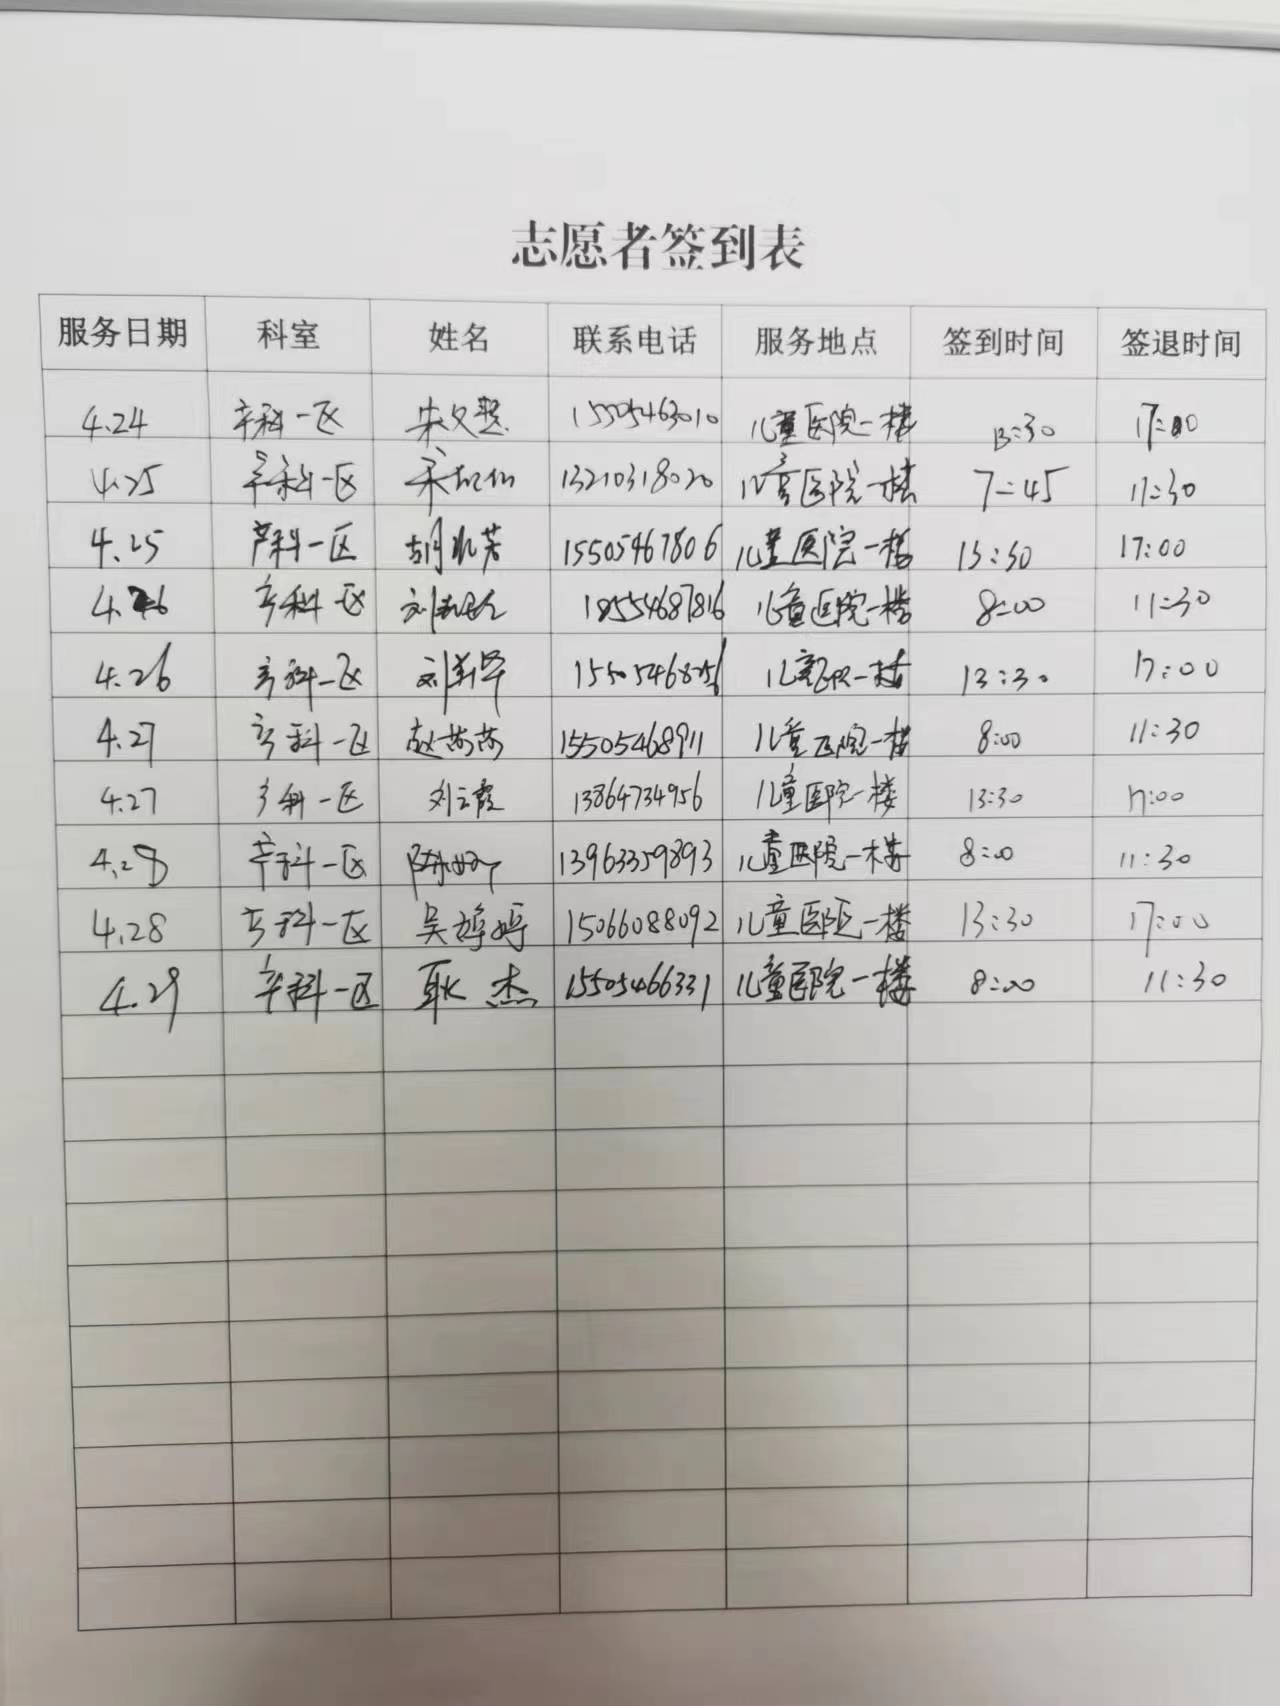 志愿者签到表
服务日期 科室 姓名 联系电话 服务地点 签到时间 签退时间
4.24 产科一区 15505463010 儿童医院一楼 13:30 17:00
4.25 产科一区 13210318020 儿童医院一楼 7:45 11:30
4.25 产科一区 15505467806 儿童医院一楼 13:30 17:00
4.26 产科一区 18554687816 儿童医院一楼 8:00 11:30
4.26 产科一区 儿童医院一楼 13:30 17:00
4.27 产科一区 赵苏苏 15505468911 儿童医院一楼 8:00 11:30
4.27 产科一区 刘云霞 13864734956 儿童医院一楼 13:30 17:00
4.28 产科一区 13963359893 儿童医院一楼 8:00 11:30
4.28 产科一区 吴婷婷 15066088092 儿童医院一楼 13:30 17:00
4.29 产科一区 耿杰 15505466331 儿童医院一楼 8:00 11:30